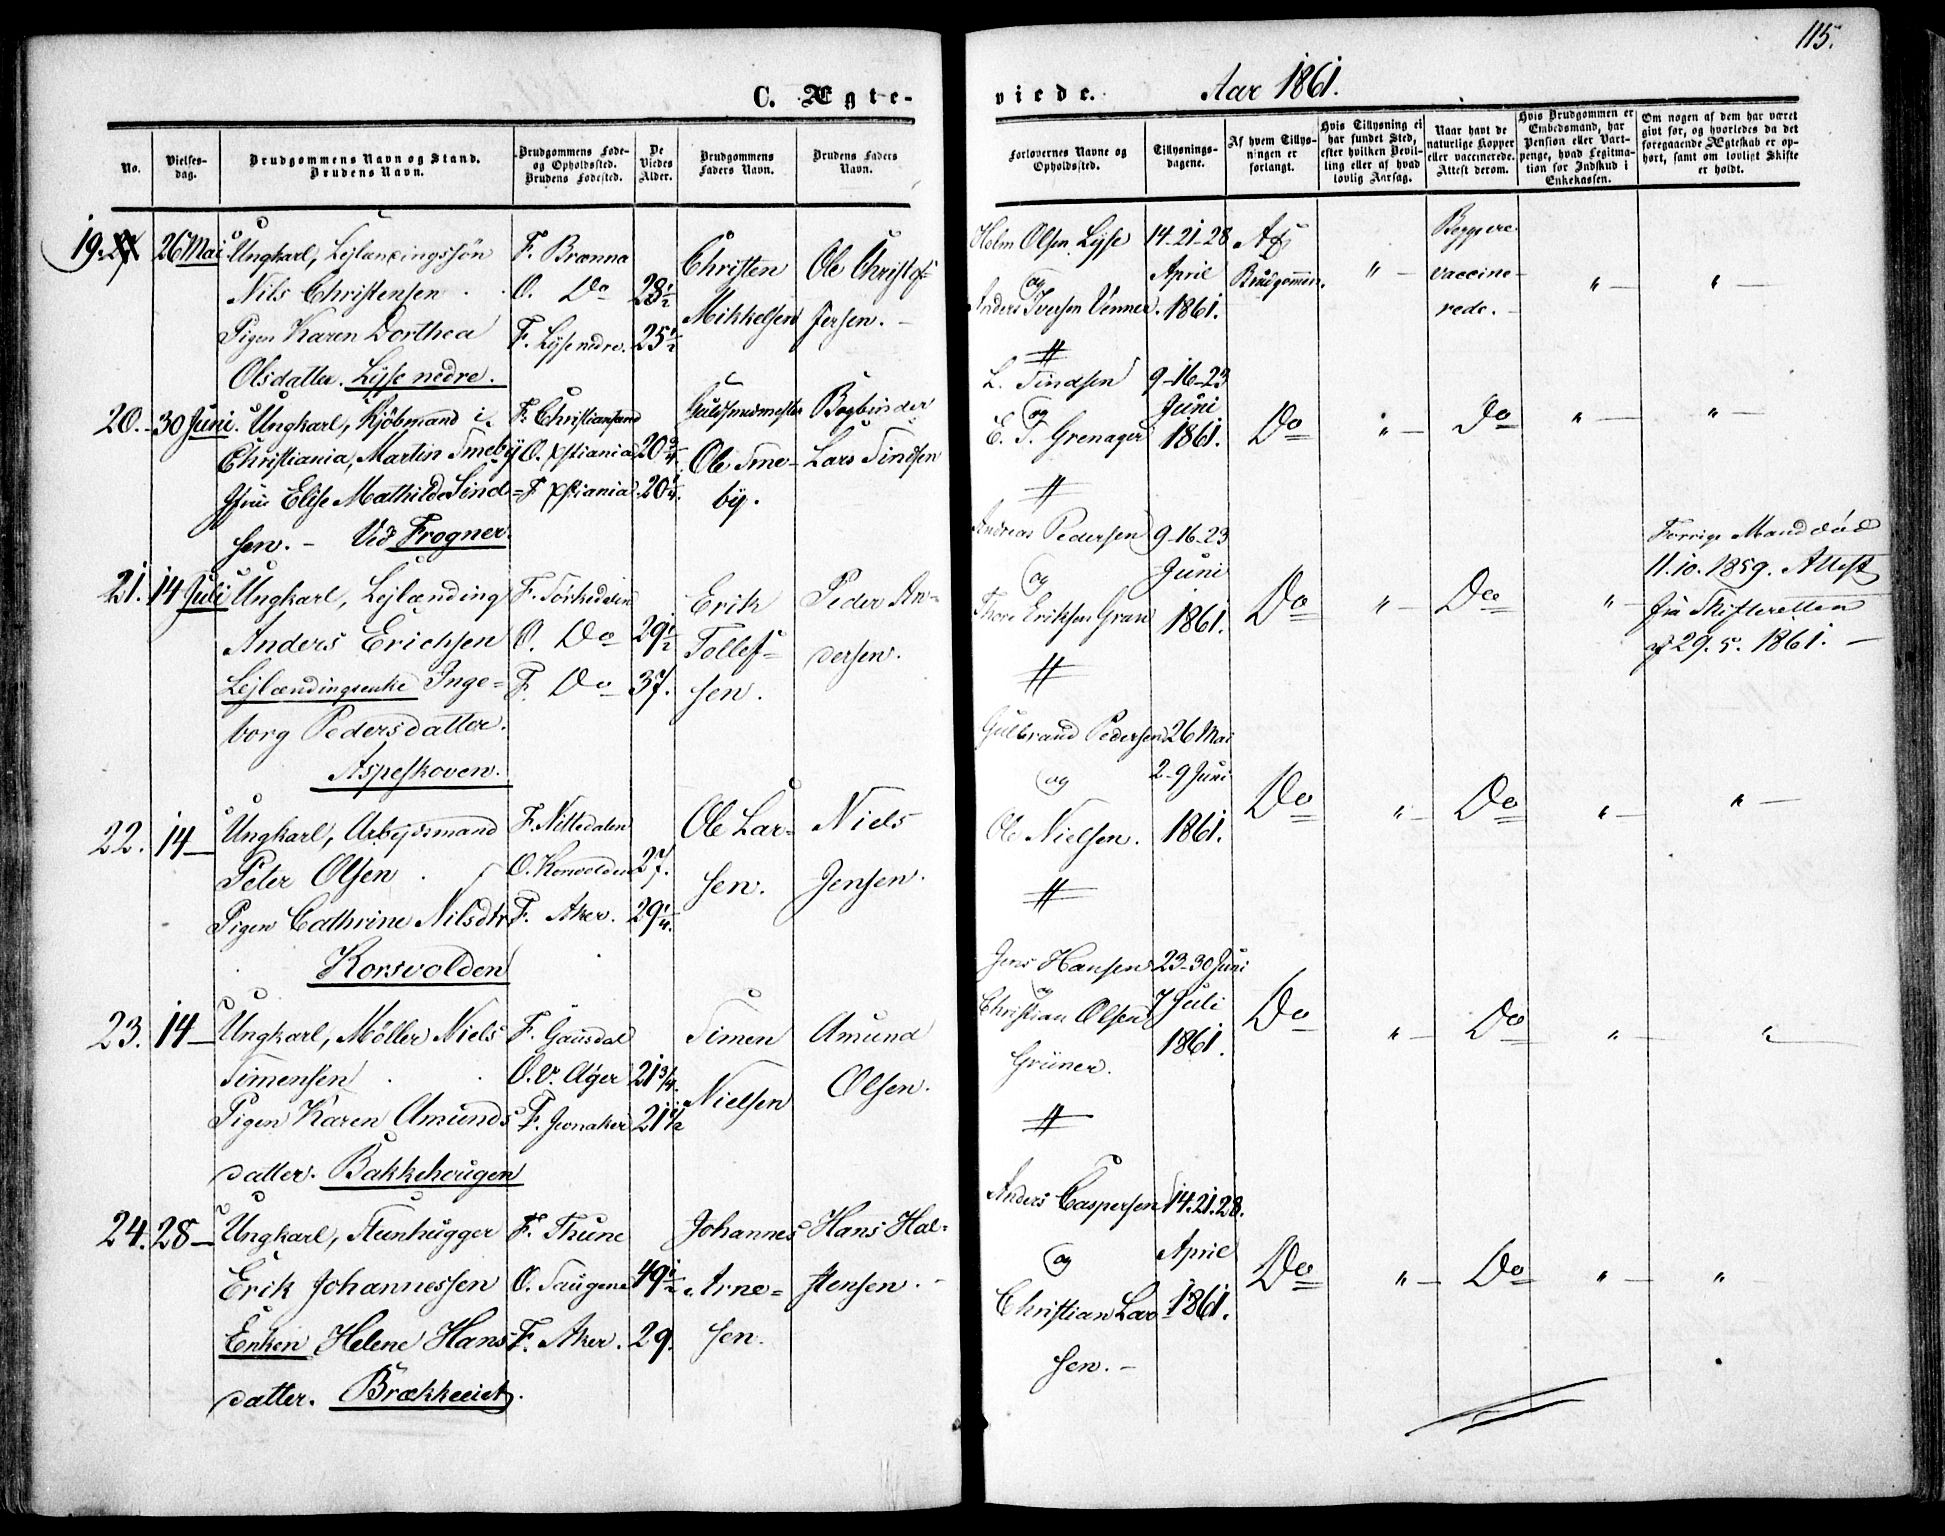 115.
C. Ægte-
viede. Aar 1861.
No.
Vielses-
dag.
Brudgommens Navn og Stand.
Brudens Navn.
Brudgommens Føde-
og Opholdssted.
Brudens Fødested.
De
Viedes
Alder.
Brudgommens
Faders Navn.
Brudens Faders
Navn.
Forlovernes Navne og
Opholdssted.
Tillysnings-
dagene.
Af hvem Tillys-
ningen er
forlangt.
Hvis Tillysning ei
har fundet Sted,
efter hvilken Bevil-
ling eller af hvad
lovlig Aarsag.
Naar havt de
naturlige Kopper
eller vaccinerede.
Attest derom.
Hvis Brudgommen er
Embedsmand, har
Pension eller Vart-
penge, hvad Legitima-
tion for Indskud i
Enkekassen.
Om nogen af dem har været
givt før, og hvorledes da det
foregaaende Ægteskab er op-
hørt, samt om lovligt Skifte
er holdt.
19. 26 Mai Ungkarl, Lejlændingssøn F. Brænna
Nils Christensen O. Do 28½
Pigen Karen Dorthea F. Lysenedre. 25½
Olsdatter. Lysenedre.
Christen
Mikkelsen
Ole Christof-
fersen.
Holm Olsen Lyse
og
Anders Iversen Venner.
14-21-28
April
1861.
Af
Brudgommen.
" Begge ere
vaccine-
rede. " "
20. 30 Juni. Ungkarl, Kjöbmand i F. Christiansand
Christiania, Martin Smeby O. Xstiania 20¾
Jfru Elise Mathilde Sind- F. Xstiania 20¼
sen. - Ved Frogner.
Guldsmedmester
Ole Sme-
by.
Bogbinder
Lars Sindsen
L. Sindsen
og
E. T. Grenager
9-16-23
Juni
1861.
Do " Do " "
21. 14 Juli Ungkarl, Lejlænding F. Sörkedalen
Anders Erichsen O. Do 29½
Lejlændingsenke Inge- F. Do 37.
borg Pedersdatter.
Aspeskoven.
Erik
Tollef-
sen.
Peder An-
dersen.
Andreas Pedersen
og
Thore Eriksen Gran
9-16-23
Juni
1861.
Do " Do "
Forrige Mand död
11.10.1859. Attest
fra Skifteretten
af 29.5.1861.
22. 14 Ungkarl, Arbejdsmand F. Nittedalen
Peter Olsen O. Korsvolden 27.
Pigen Cathrine Nilsdtr F. Aker. 29¼.
Korsvolden
Ole Lar-
sen.
Niels
Jensen.
Gulbrand Pedersen
og
Ole Nielsen.
26 Mai
2-9 Juni
1861.
Do " Do " "
23. 14 Ungkarl, Möller Niels F. Gausdal
Simensen O. V. Aker 21¾.
Pigen Karen Amunds F. Jevnaker 21½
datter. Bakkehougen
Simen
Nielsen
Amund
Olsen.
Jens Hansen
og
Christian Olsen
Grüner.
23-30 Juni
7 Juli
1861.
Do " Do " "
24. 28 Ungkarl, Steenhugger F. Thune
Erik Johannessen O. Saugene 49½
Enken Helene Hans- F. Aker. 29.
datter. Brækkeeiet.
Johannes
Arne-
sen.
Hans Hal-
stensen.
Anders Caspersen
og
Christian Lar-
sen.
14.21.28.
April
1861.
Do " Do " "